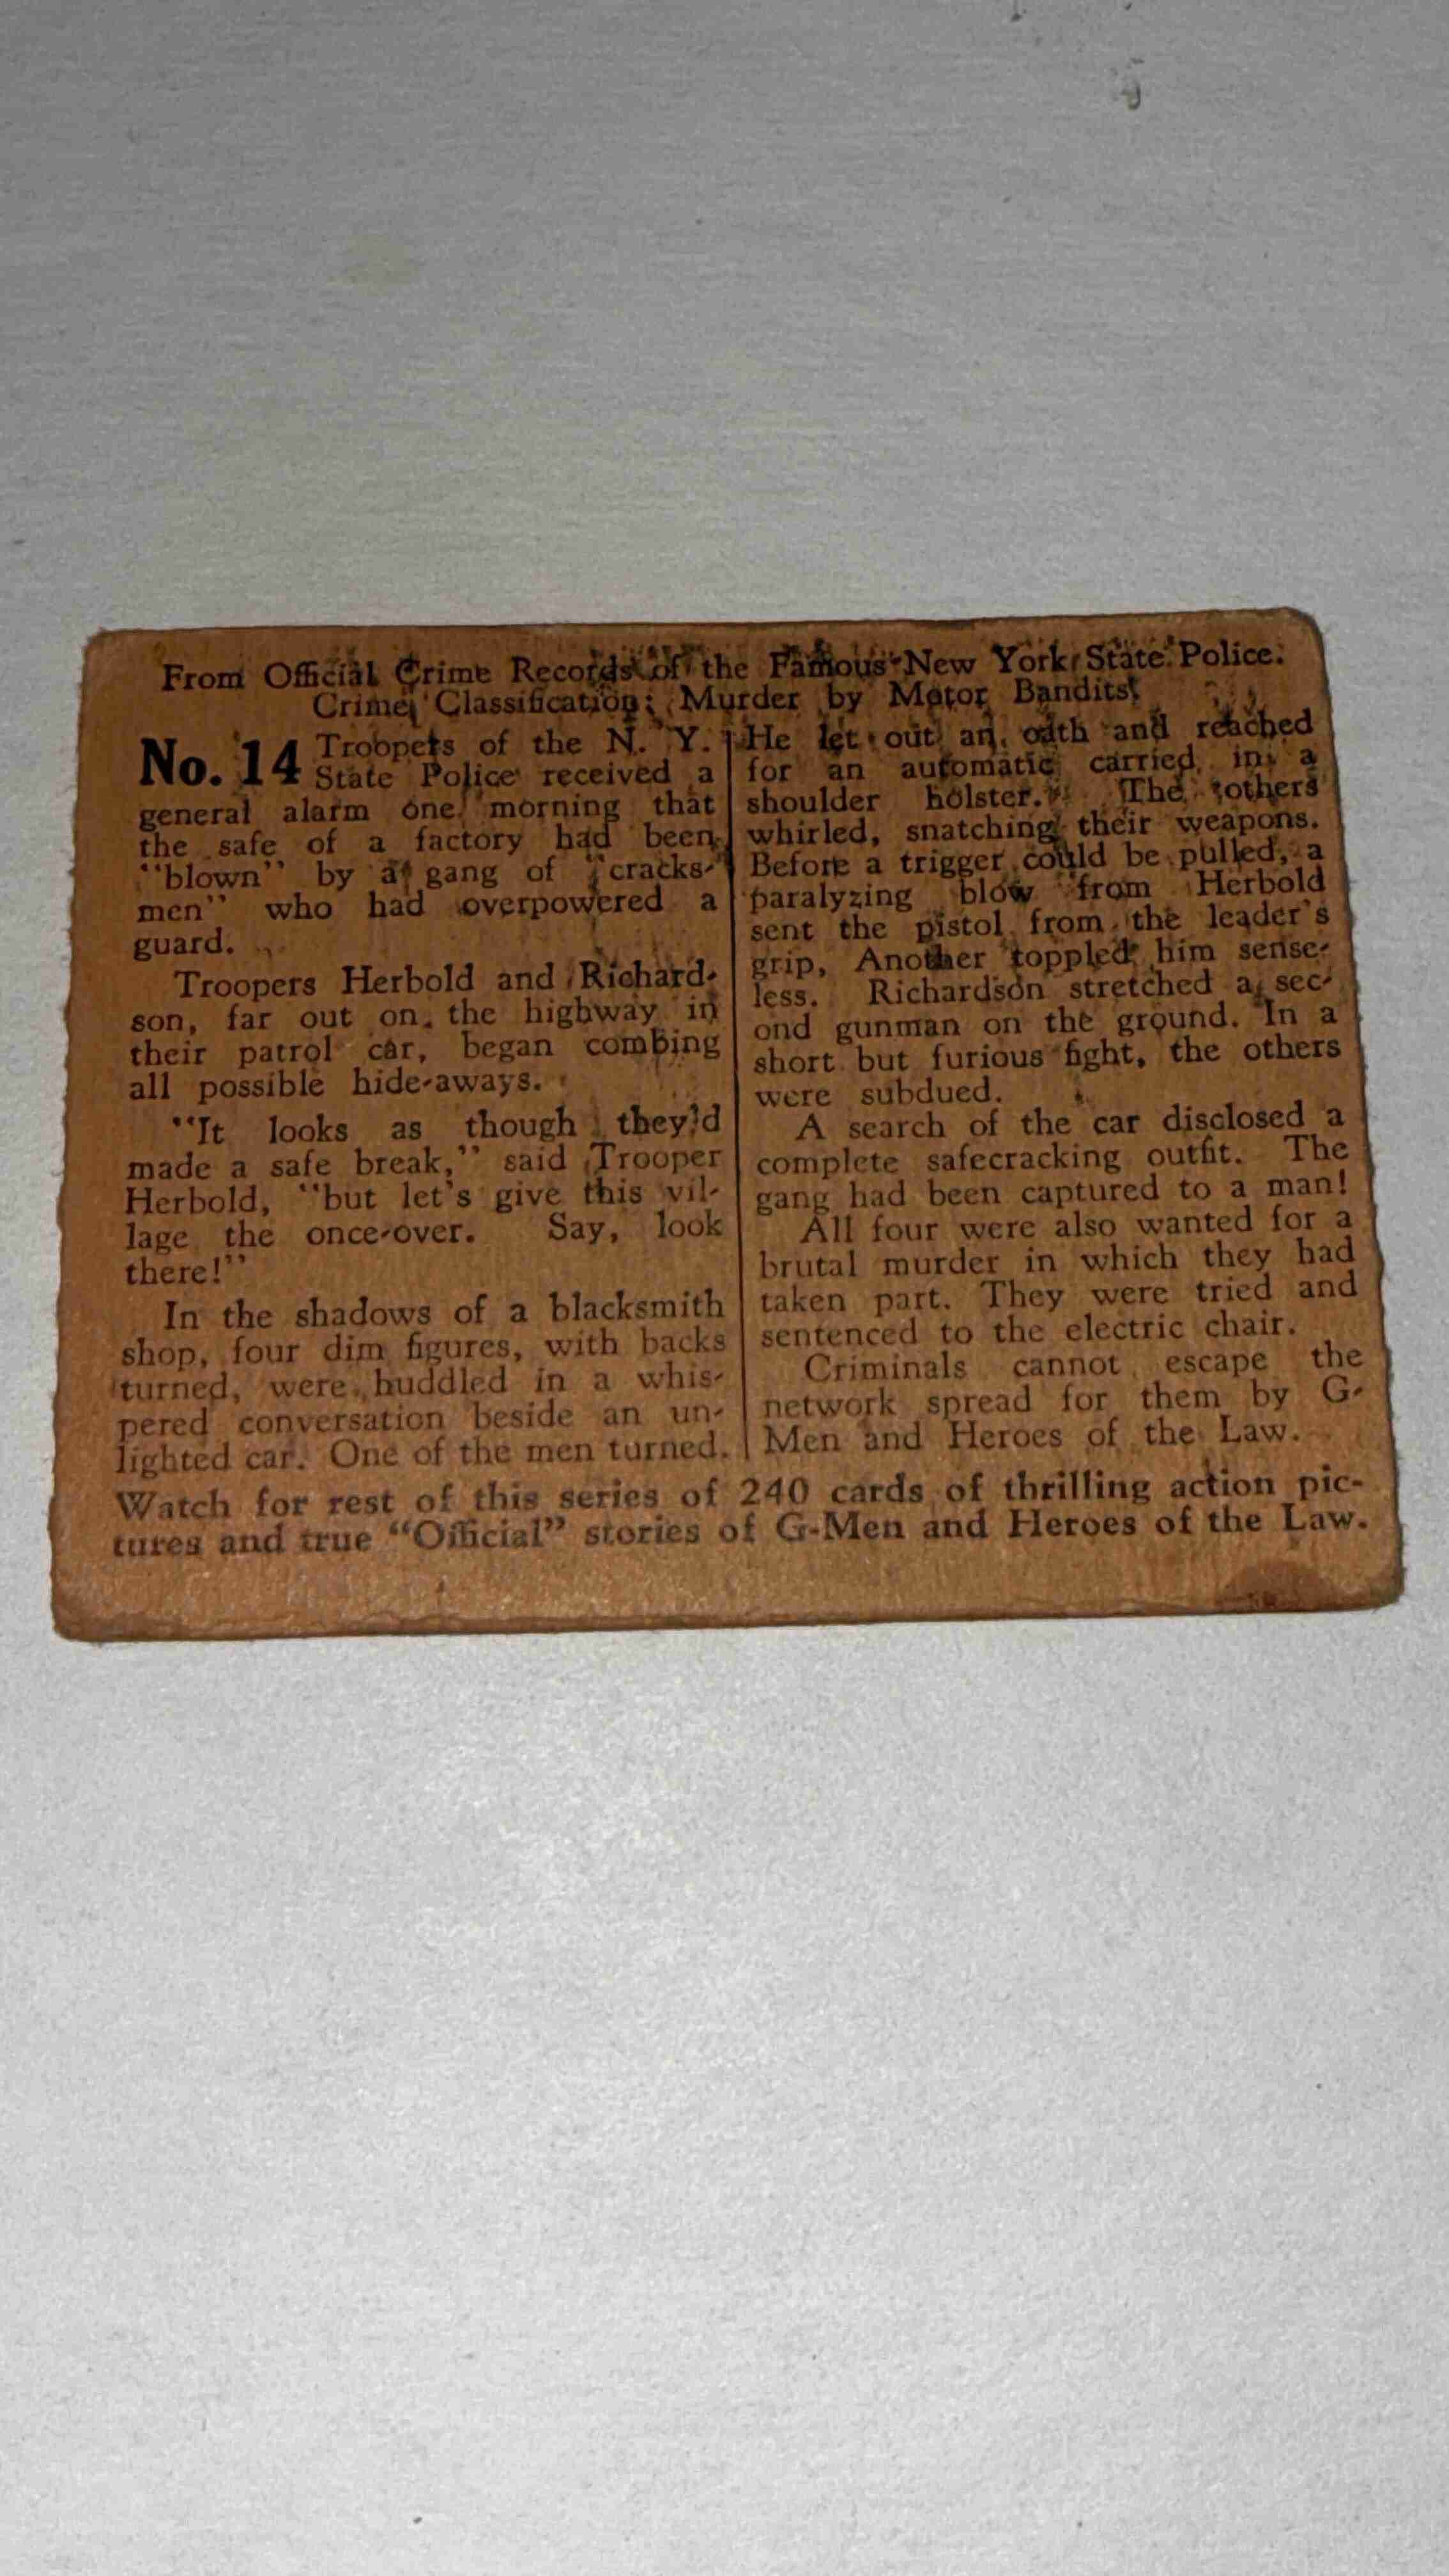 From Official Crime Records of the Famous New York State Police.
Crime Classification: Murder by Motor Bandits
No. 14 Troopers of the N. Y.
State Police received a
general alarm one morning that
the safe of a factory had been
"blown" by a gang of "cracks-
men" who had overpowered a
guard.
Troopers Herbold and Richard-
son, far out on the highway in
their patrol car, began combing
all possible hide-aways.
"It looks as though they'd
made a safe break," said Trooper
Herbold, "but let's give this vil-
lage the once-over. Say, look
there!"
In the shadows of a blacksmith
shop, four dim figures, with backs
turned, were huddled in a whis-
pered conversation beside an un-
lighted car. One of the men turned.
He let out an oath and reached
for an automatic carried in a
shoulder holster. The others
whirled, snatching their weapons.
Before a trigger could be pulled, a
paralyzing blow from Herbold
sent the pistol from the leader's
grip, Another toppled him sense-
less. Richardson stretched a sec-
ond gunman on the ground. In a
short but furious fight, the others
were subdued.
A search of the car disclosed a
complete safecracking outfit. The
gang had been captured to a man!
All four were also wanted for a
brutal murder in which they had
taken part. They were tried and
sentenced to the electric chair.
Criminals cannot escape the
network spread for them by G-
Men and Heroes of the Law.
Watch for rest of this series of 240 cards of thrilling action pic-
tures and true "Official" stories of G-Men and Heroes of the Law.